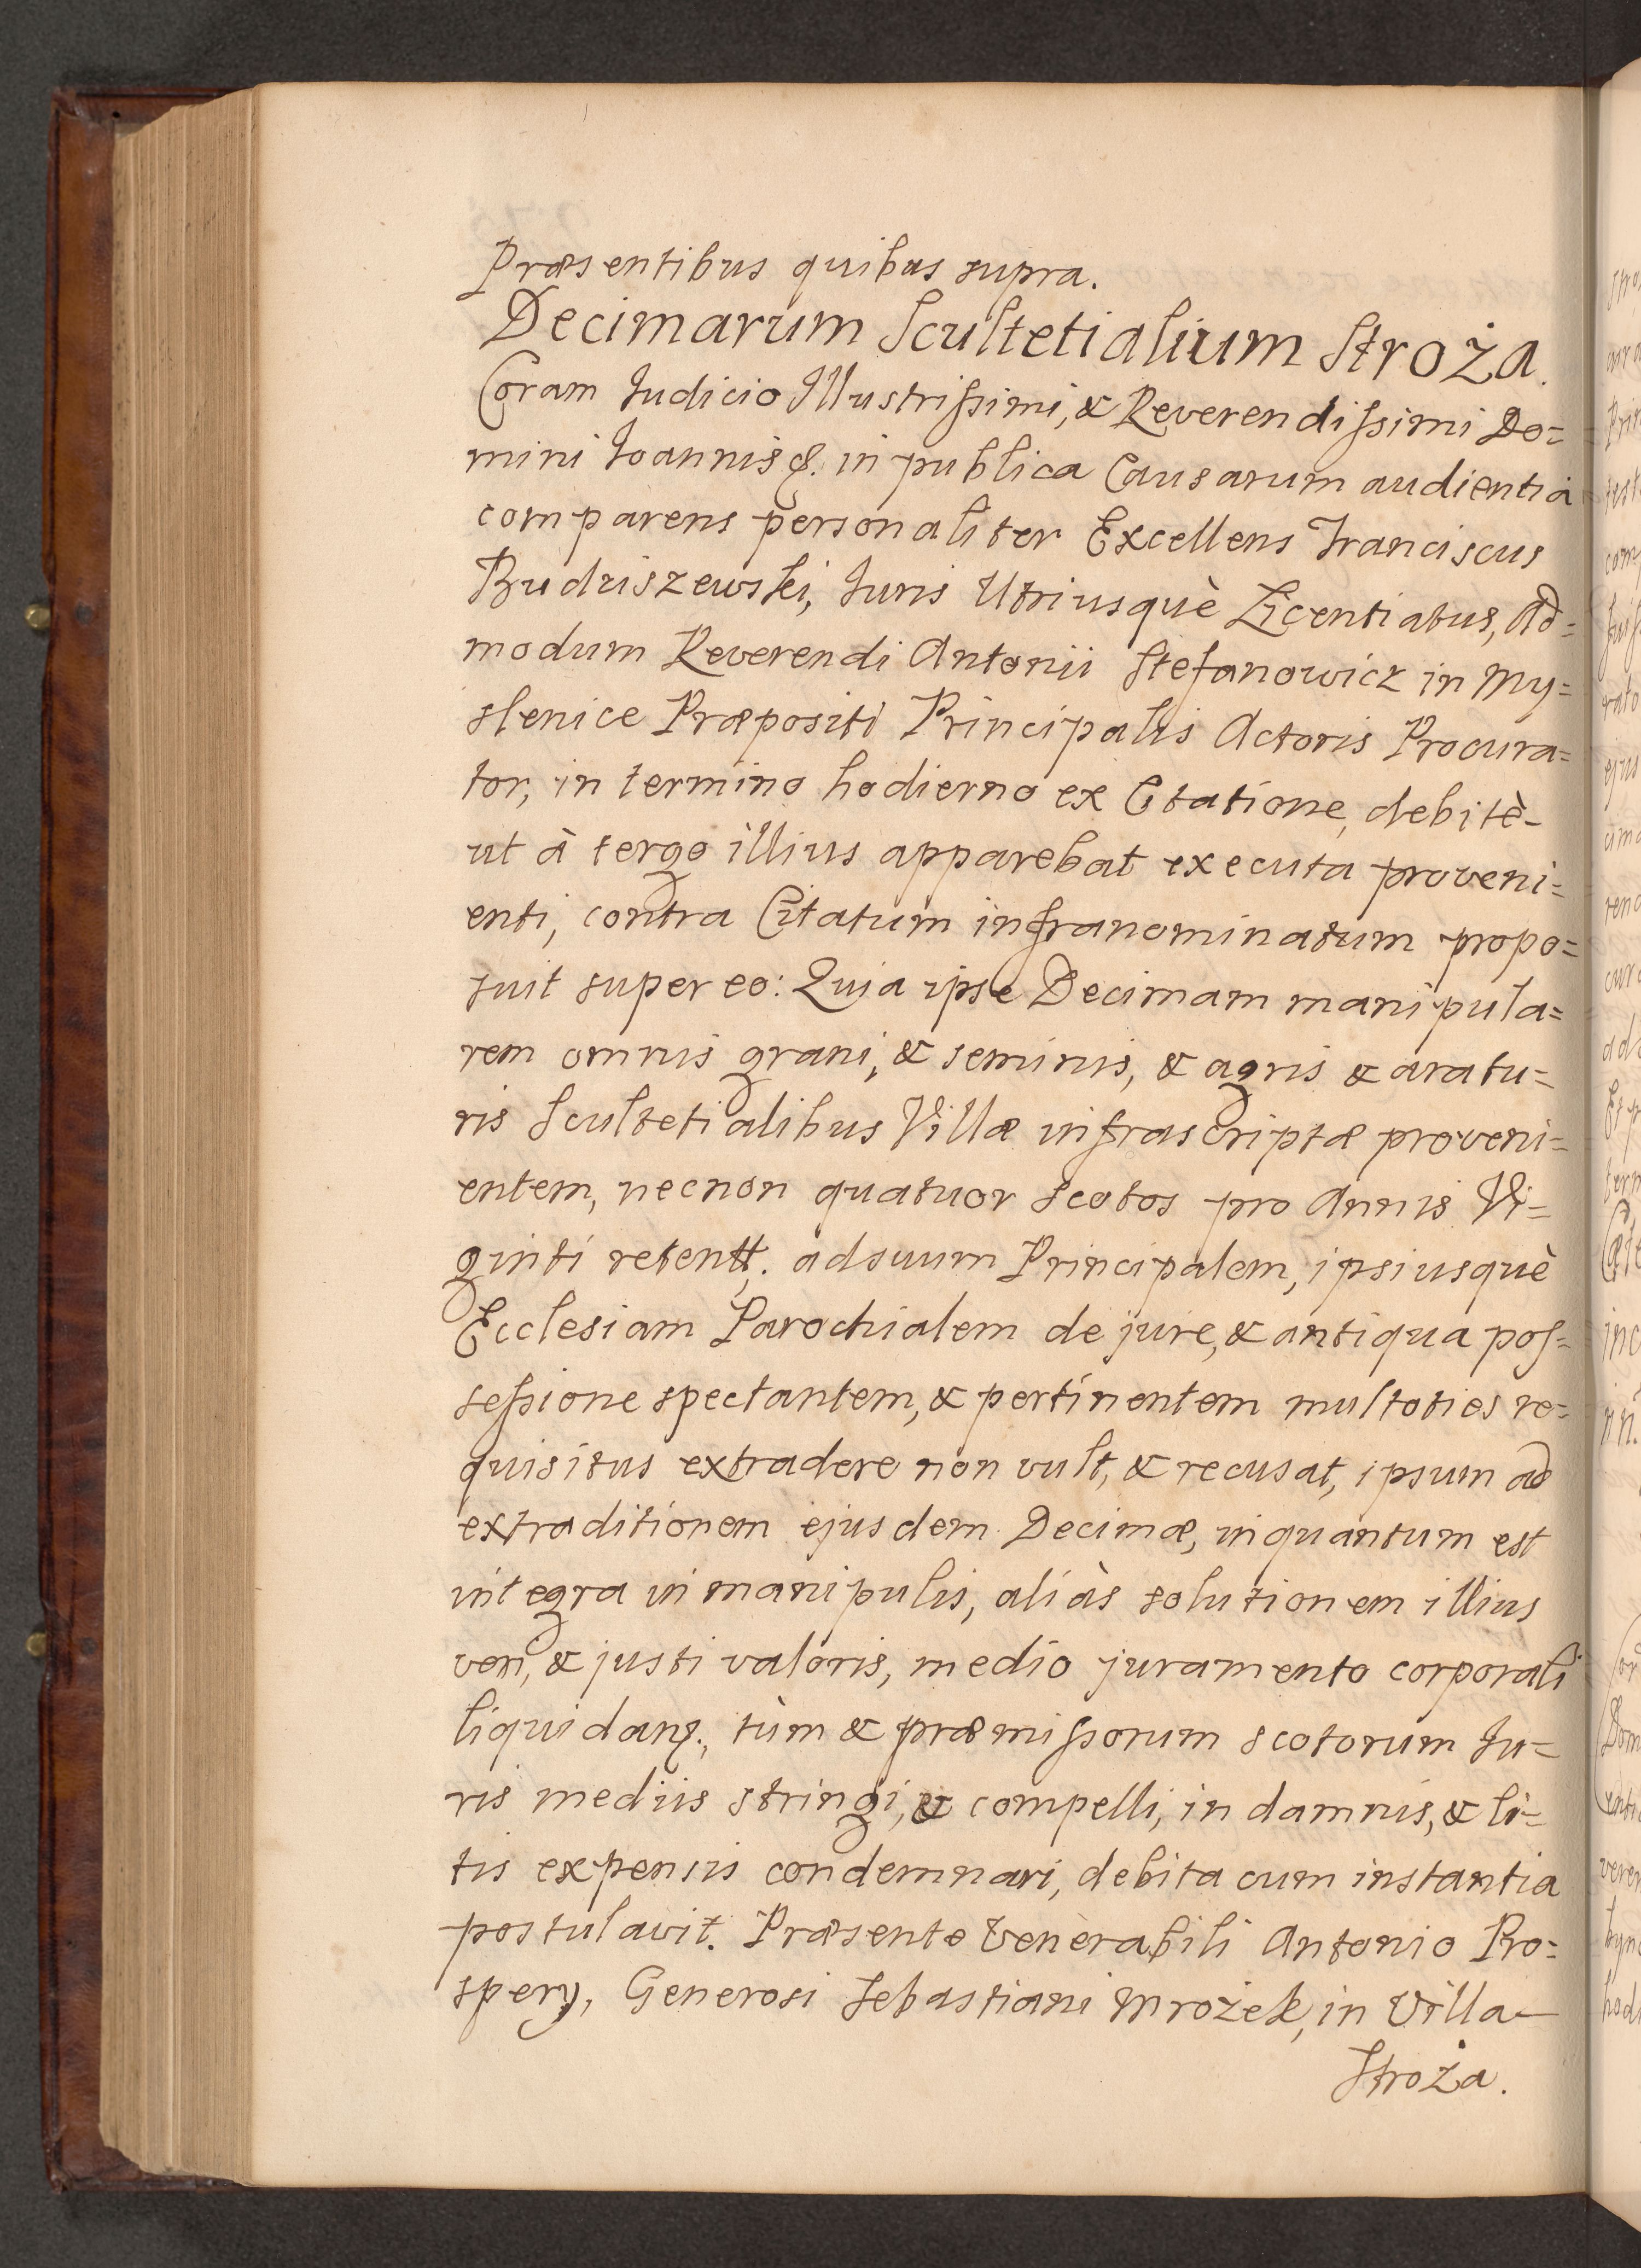 Præsentibus quibus supra.
Decimarum Scultetialium Stroża.
Coram Iudicio Illustrissimi, & Reverendissimi Do=
mini Ioannis &. in publica Causarum audientia
comparens personaliter Excellens Franciscus
Budziszewski, Iuris Utriusquè Licentiatus, Ad=
modum Reverendi Antonii Stefanowicz in My=
slenice Præpositi Principalis Actoris Procura=
tor, in termino hodierno ex Citatione, debitè-
ut à tergo illius apparebat executa proveni=
enti, contra Citatum infranominatum propo=
suit super eo: Quia ipse Decimam manipula=
rem omnis grani, & seminis, & agris & aratu=
ris Scultetialibus Villæ infrascriptæ proveni=
entem, necnon quatuor scotos pro Annis Vi=
ginti retentt. ad suum Principalem, ipsiusquè
Ecclesiam Parochialem de jure, & antiqua pos=
sessione spectantem, & pertinentem multoties re=
quisitus extradere non vult, & recusat, ipsum ad
extraditionem ejusdem Decimæ, inquantum est
integra in manipulis, aliàs solutionem illius
veri, & justi valoris, medio juramento corporali
liquidan., tùm & præmissorum scotorum Iu=
ris mediis stringi, & compelli, in damnis, & li=
tis expensis condemnari, debita cum instantia
postulavit. Præsente Venerabili Antonio Pro=
spery, Generosi Sebastiani Mrożek, in Villa-
Stroża.